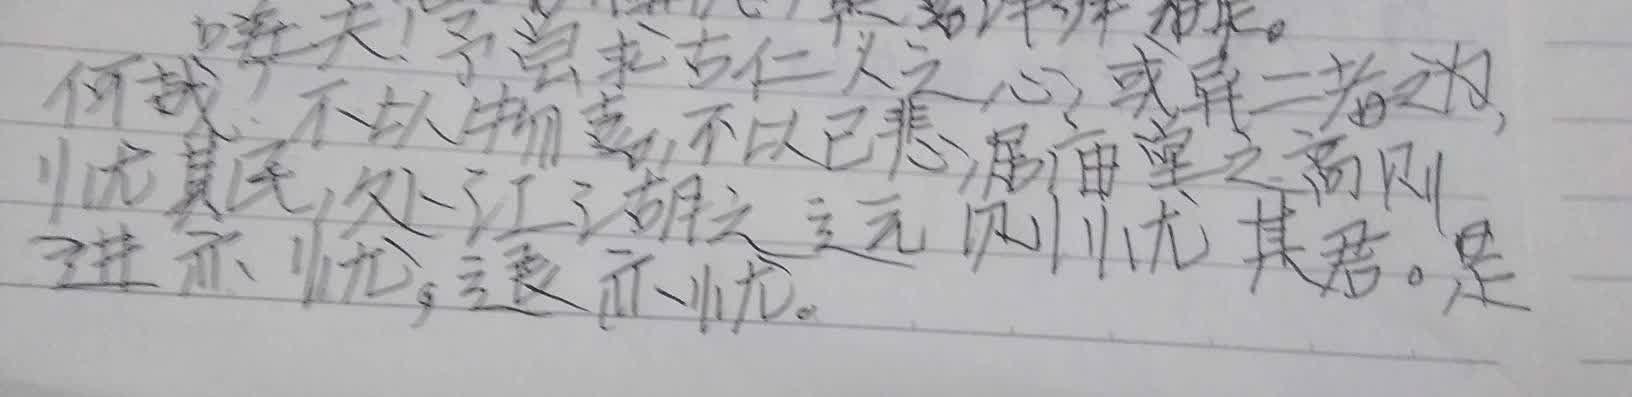 嗟夫!予尝求古仁义之心,或异二者之为,
何哉?不以物喜,不以己悲,居庙堂之高则
忧其民,处江湖之远则忧其君。是
进亦忧,退亦忧。